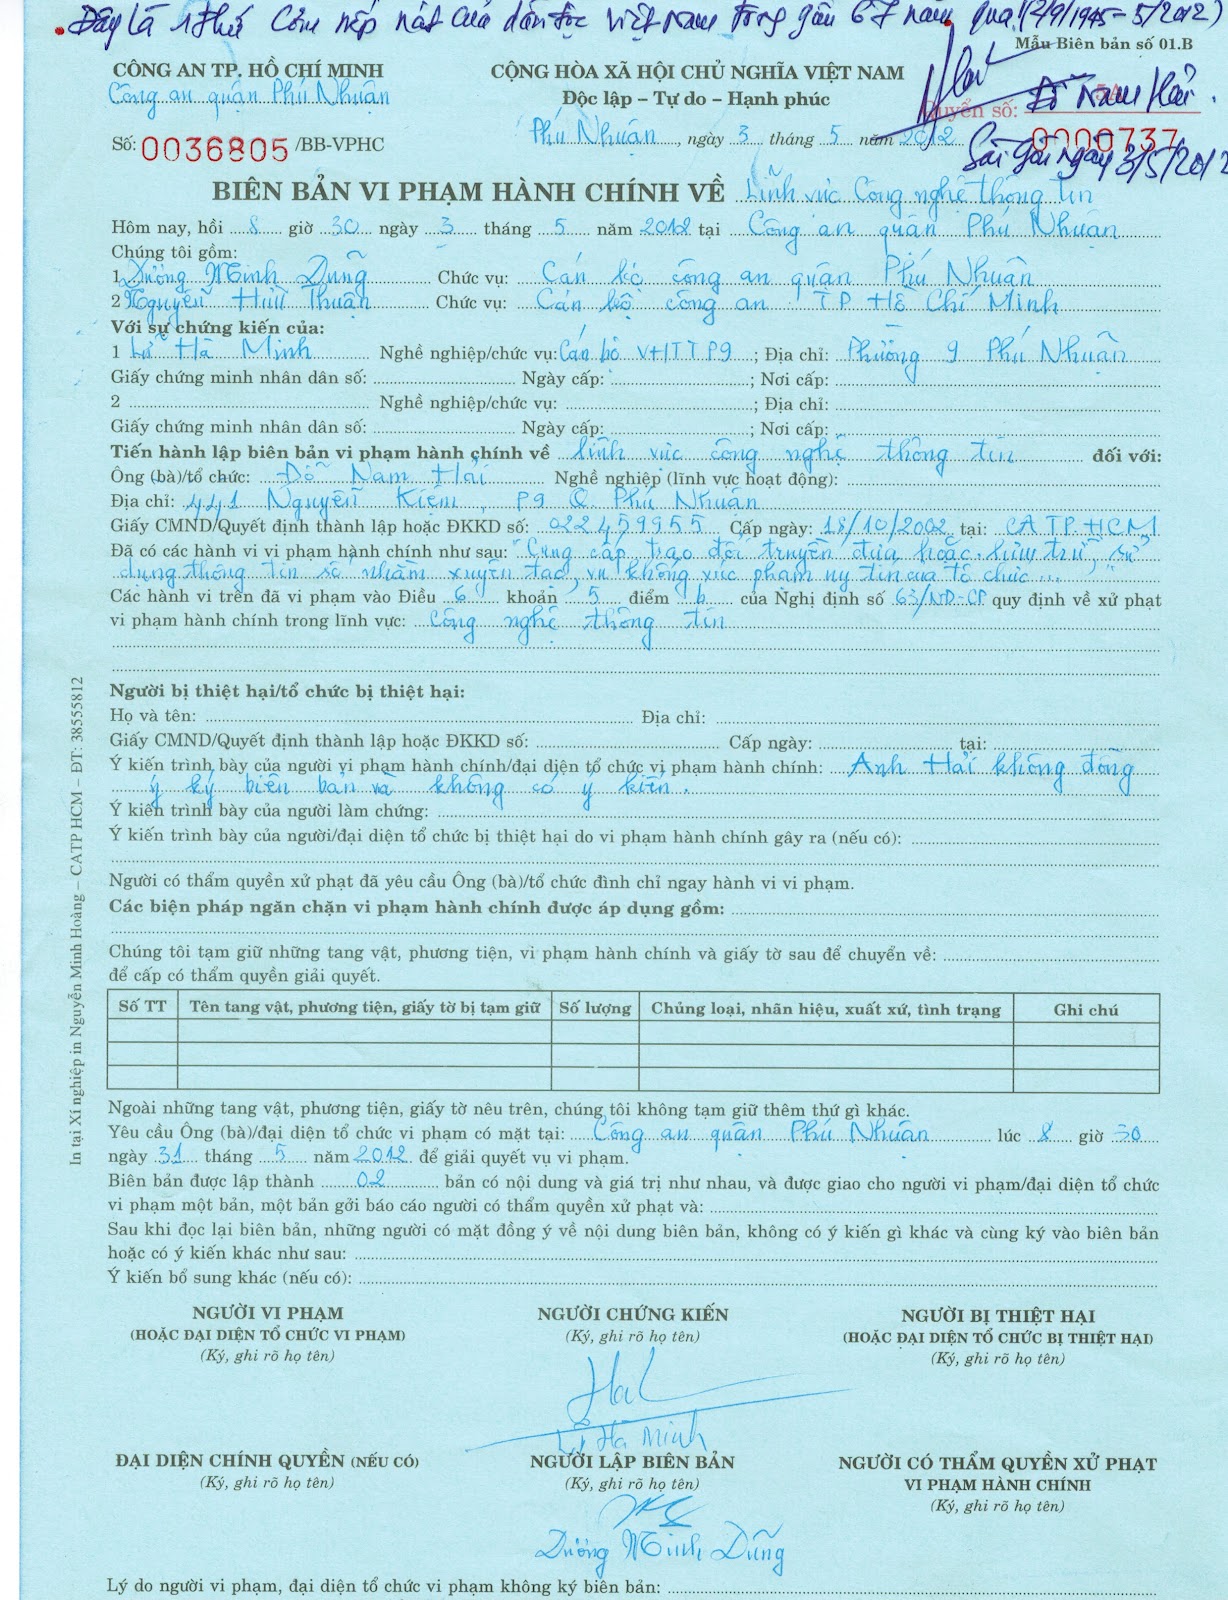 Đây là 1 thứ Cơm nếp nát của dân tộc Việt Nam trong gần 67 năm qua! (2/9/1945 - 5/2012)
Mẫu Biên bản số 01.B
CÔNG AN TP. HỒ CHÍ MINH
CỘNG HÒA XÃ HỘI CHỦ NGHĨA VIỆT NAM
Công an quận Phú Nhuận
Độc lập – Tự do – Hạnh phúc
Quyển số: 5A
Đỗ Nam Hải
Số: 0036805 /BB-VPHC
Phú Nhuận, ngày 3 tháng 5 năm 2012
0000737
Sài Gòn ngày 3/5/2012
BIÊN BẢN VI PHẠM HÀNH CHÍNH VỀ Lĩnh vực Công nghệ thông tin
Hôm nay, hồi 8 giờ 30 ngày 3 tháng 5 năm 2012 tại Công an quận Phú Nhuận
Chúng tôi gồm:
1 Dương Minh Dũng Chức vụ: Cán bộ công an quận Phú Nhuận
2 Nguyễn Hữu Thuận Chức vụ: Cán bộ công an TP Hồ Chí Minh
Với sự chứng kiến của:
1 Lữ Hà Minh Nghề nghiệp/chức vụ: Cán bộ VHTT P9; Địa chỉ: Phường 9 Phú Nhuận
Giấy chứng minh nhân dân số: Ngày cấp: ; Nơi cấp:
2 Nghề nghiệp/chức vụ: ; Địa chỉ:
Giấy chứng minh nhân dân số: Ngày cấp: ; Nơi cấp:
Tiến hành lập biên bản vi phạm hành chính về lĩnh vực công nghệ thông tin đối với:
Ông (bà)/tổ chức: Đỗ Nam Hải Nghề nghiệp (lĩnh vực hoạt động):
Địa chỉ: 441 Nguyễn Kiệm, P9 Q. Phú Nhuận
Giấy CMND/Quyết định thành lập hoặc ĐKKD số: 022459955 Cấp ngày: 18/10/2002 tại: CA TP. HCM
Đã có các hành vi vi phạm hành chính như sau: "Cung cấp, trao đổi truyền đưa hoặc lưu trữ, sử
dụng thông tin số nhằm xuyên tạc, vu khống xúc phạm uy tín của tổ chức..."
Các hành vi trên đã vi phạm vào Điều 6 khoản 5 điểm b của Nghị định số 63/NĐ-CP quy định về xử phạt
vi phạm hành chính trong lĩnh vực: Công nghệ thông tin
Người bị thiệt hại/tổ chức bị thiệt hại:
Họ và tên: Địa chỉ:
Giấy CMND/Quyết định thành lập hoặc ĐKKD số: Cấp ngày: tại:
Ý kiến trình bày của người vi phạm hành chính/đại diện tổ chức vi phạm hành chính: Anh Hải không đồng
ý ký biên bản và không có ý kiến.
Ý kiến trình bày của người làm chứng:
Ý kiến trình bày của người/đại diện tổ chức bị thiệt hại do vi phạm hành chính gây ra (nếu có):
Người có thẩm quyền xử phạt đã yêu cầu Ông (bà)/tổ chức đình chỉ ngay hành vi vi phạm.
Các biện pháp ngăn chặn vi phạm hành chính được áp dụng gồm:
Chúng tôi tạm giữ những tang vật, phương tiện, vi phạm hành chính và giấy tờ sau để chuyển về:
để cấp có thẩm quyền giải quyết.
Số TT Tên tang vật, phương tiện, giấy tờ bị tạm giữ Số lượng Chủng loại, nhãn hiệu, xuất xứ, tình trạng Ghi chú
Ngoài những tang vật, phương tiện, giấy tờ nêu trên, chúng tôi không tạm giữ thêm thứ gì khác.
Yêu cầu Ông (bà)/đại diện tổ chức vi phạm có mặt tại: Công an quận Phú Nhuận lúc 8 giờ 30
ngày 31 tháng 5 năm 2012 để giải quyết vụ vi phạm.
Biên bản được lập thành 02 bản có nội dung và giá trị như nhau, và được giao cho người vi phạm/đại diện tổ chức
vi phạm một bản, một bản gởi báo cáo người có thẩm quyền xử phạt và:
Sau khi đọc lại biên bản, những người có mặt đồng ý về nội dung biên bản, không có ý kiến gì khác và cùng ký vào biên bản
hoặc có ý kiến khác như sau:
Ý kiến bổ sung khác (nếu có):
NGƯỜI VI PHẠM
(HOẶC ĐẠI DIỆN TỔ CHỨC VI PHẠM)
(Ký, ghi rõ họ tên)
NGƯỜI CHỨNG KIẾN
(Ký, ghi rõ họ tên)
Lữ Hà Minh
NGƯỜI BỊ THIỆT HẠI
(HOẶC ĐẠI DIỆN TỔ CHỨC BỊ THIỆT HẠI)
(Ký, ghi rõ họ tên)
ĐẠI DIỆN CHÍNH QUYỀN (NẾU CÓ)
(Ký, ghi rõ họ tên)
NGƯỜI LẬP BIÊN BẢN
(Ký, ghi rõ họ tên)
Dương Minh Dũng
NGƯỜI CÓ THẨM QUYỀN XỬ PHẠT
VI PHẠM HÀNH CHÍNH
(Ký, ghi rõ họ tên)
Lý do người vi phạm, đại diện tổ chức vi phạm không ký biên bản:
In tại Xí nghiệp in Nguyễn Minh Hoàng – CATP HCM – ĐT: 38555812